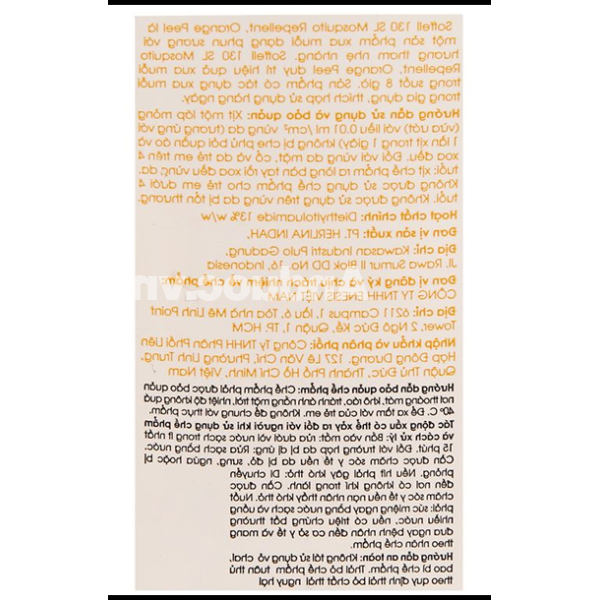 Soffell 130 SL Mosquito Repellent, Orange Peel là
một sản phẩm xua muỗi dạng phun sương với
hương thơm nhẹ nhàng. Soffell 130 SL Mosquito
Repellent, Orange Peel duy trì hiệu quả xua muỗi
trong suốt 8 giờ. Sản phẩm có tác dụng xua muỗi
trong gia dụng, thích hợp sử dụng hàng ngày.
Hướng dẫn sử dụng và bảo quản: Xịt một lớp mỏng
(vừa ướt) với liều 0.01 ml / cm² vùng da (tương ứng với
1 lần xịt trong 1 giây) không bị che phủ bởi quần áo và
xoa đều. Đối với vùng da mặt, cổ và da trẻ em trên 4
tuổi: xịt chế phẩm ra lòng bàn tay rồi xoa đều vùng da.
Không được sử dụng chế phẩm cho trẻ em dưới 4
tuổi. Không được sử dụng trên vùng da bị tổn thương.
Hoạt chất chính: Diethyltoluamide 13% w/w
Đơn vị sản xuất: PT. HERLINA INDAH.
Địa chỉ: Kawasan Industri Pulo Gadung,
Jl. Rawa Sumur II Blok DD No. 16, Indonesia
Đơn vị đăng ký, chịu trách nhiệm về chế phẩm:
CÔNG TY TNHH ENESS VIỆT NAM
Địa chỉ: 6211 Campus 1, lầu 6, Tòa nhà Mê Linh Point
Tower, 2 Ngô Đức Kế, Quận 1, TP. HCM
Nhập khẩu và phân phối: Công Ty TNHH Phân Phối Liên
Hợp Đông Dương. 127 Lê Văn Chí, Phường Linh Trung,
Quận Thủ Đức, Thành Phố Hồ Chí Minh, Việt Nam
Hướng dẫn bảo quản chế phẩm: Chế phẩm phải được bảo quản
nơi thoáng mát, khô ráo, tránh ánh nắng mặt trời, nhiệt độ không quá
40º C. Để xa tầm tay của trẻ em. Không để chung với thực phẩm.
Tác động xấu có thể xảy ra đối với người khi sử dụng chế phẩm
và cách xử lý: Bắn vào mắt: rửa dưới vòi nước sạch trong ít nhất
15 phút. Đối với trường hợp da bị dị ứng: Rửa sạch bằng nước.
Cần được chăm sóc y tế nếu da bị đỏ, sưng, ngứa hoặc bị
phỏng. Nếu hít phải gây khó thở: Di chuyển
đến nơi có không khí trong lành. Cần được
chăm sóc y tế nếu nạn nhân thấy khó thở. Nuốt
phải: súc miệng ngay bằng nước sạch và uống
nhiều nước, nếu có triệu chứng bất thường
đưa ngay bệnh nhân đến cơ sở y tế và mang
theo nhãn chế phẩm.
Hướng dẫn an toàn: Không tái sử dụng vỏ chai,
bao bì chế phẩm. Thải bỏ chế phẩm tuân thủ
theo quy định thải bỏ chất thải nguy hại